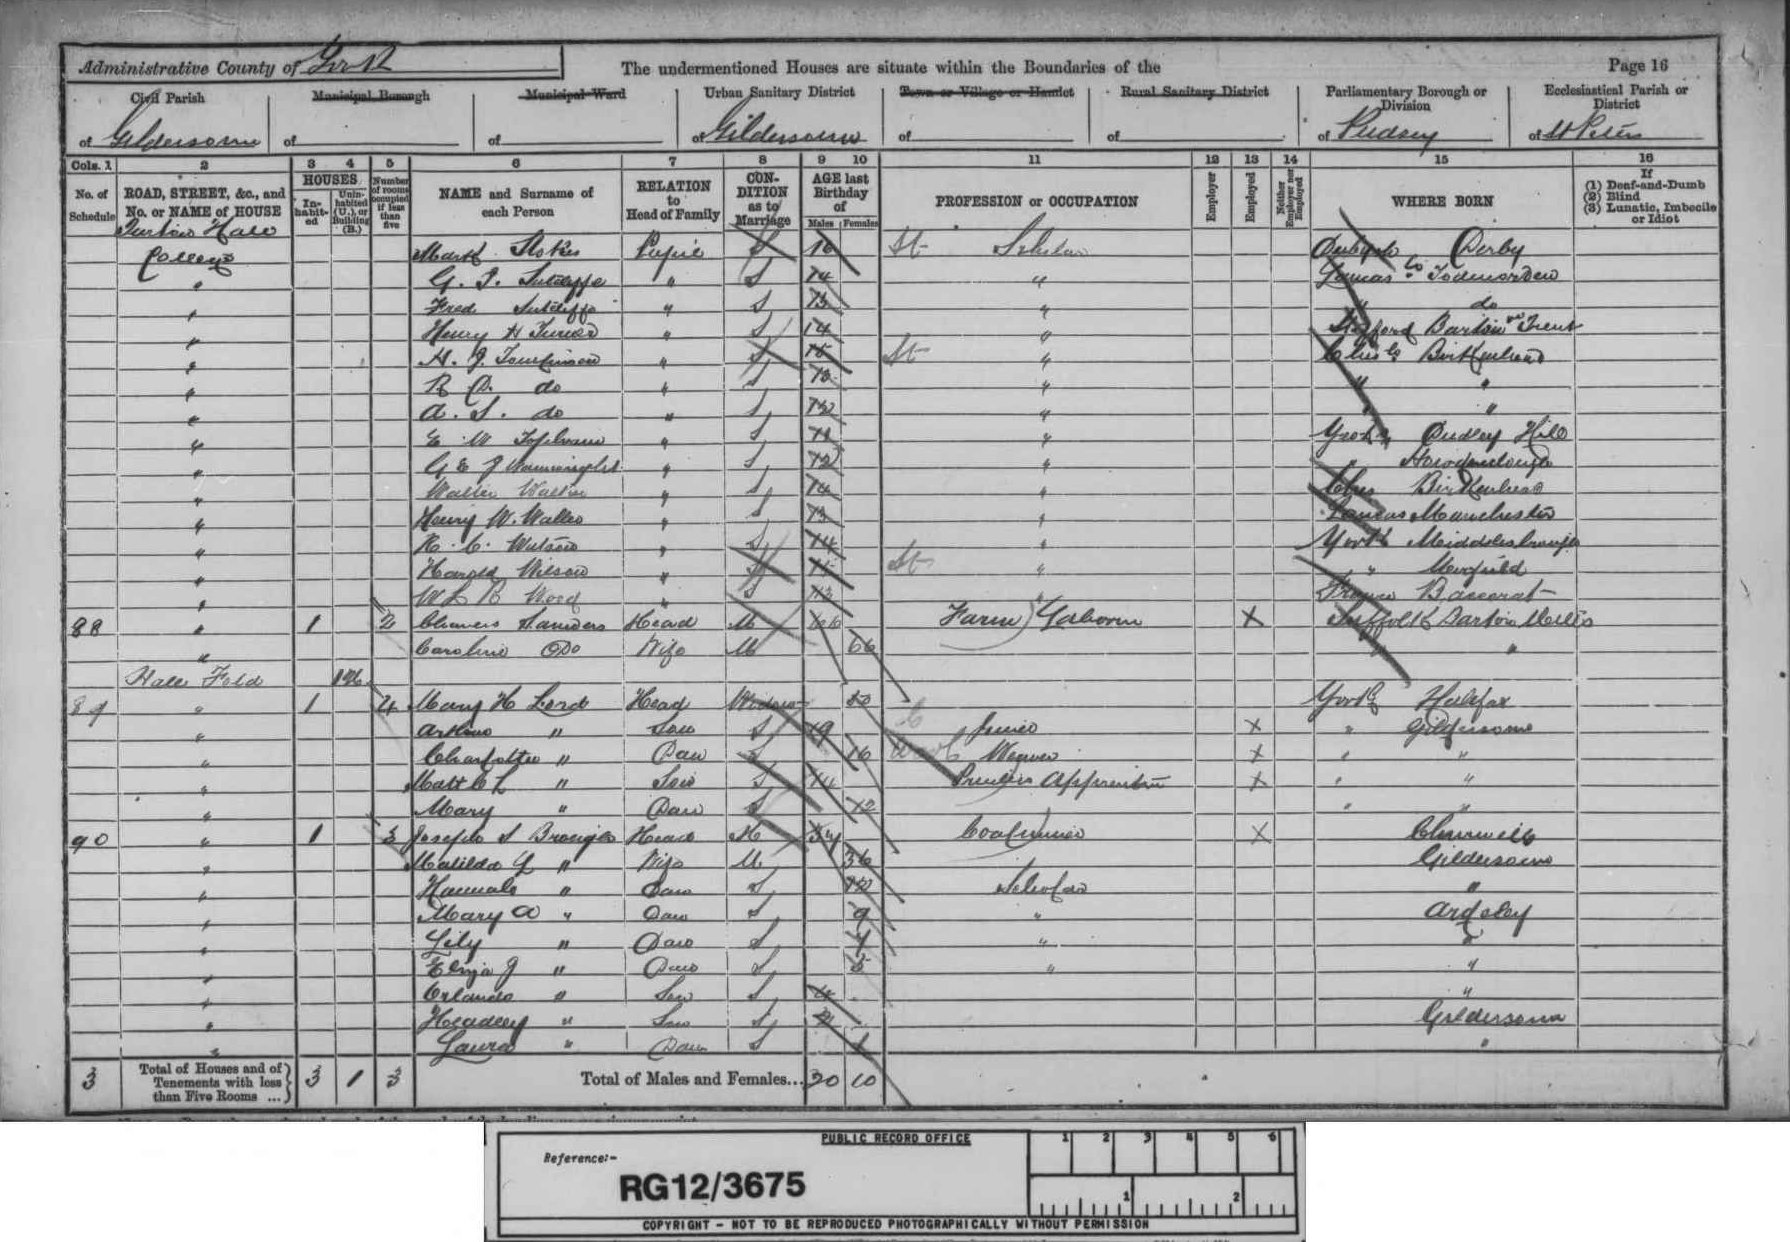 Administrative County of York The undermentioned Houses are situate within the Boundaries of the Page 16
Civil Parish Municipal Borough Municipal Ward Urban Sanitary District Town or Village or Hamlet Rural Sanitary District Parliamentary Borough or Division Ecclesiastical Parish or District
of Gildersome of of of Gildersome of of of Pudsey of St Peters
Cols. 1 2 3 4 5 6 7 8 9 10 11 12 13 14 15 16
No. of Schedule ROAD, STREET, &c., and No. or NAME of HOUSE HOUSES In-habit-ed Unin-habited (U.), or Building (B.) Number of rooms occupied if less than five NAME and Surname of each Person RELATION to Head of Family CON-DITION as to Marriage AGE last Birthday of Males Females PROFESSION or OCCUPATION Employer Employed Neither Employer nor Employed WHERE BORN If (1) Deaf-and-Dumb (2) Blind (3) Lunatic, Imbecile or Idiot
Hall
College Mark Stokes Pupil S 16 St Scholar Derby
" G. Sutcliffe " S 14 " Lancas Todmorden
" Fred Sutcliffe " S 13 " " do
" Henry H Turner " S 14 " Stafford Barton on Trent
" H. J. Tomlinson " S 15 St " Ches Birkenhead
" R do " S 13 " " "
" A. S. do " S 12 " " "
" E W " S 11 " York Dudley Hill
" G E J Wainwright " S 12 " "
" Walter Walker " S 14 " Ches Birkenhead
" Henry W. " S 13 " Lancas Manchester
" C. Watson " S 14 " York Middlesbrough
" Harold Wilson " S 15 St " " Mirfield
" Wood " S 13 " France Baccarat
88 " 1 2 Sanders Head M 66 Farm Laborer X Suffolk Barton Mills
" Caroline Do Wife M 66 " "
Hall Fold
89 " 1 4 Mary H Lord Head Widow York Halifax
" " Son S 19 X " Gildersome
" Charlotte " Daur S 16 Weaver X " "
" " Son S 14 Apprentice X " "
" Mary " Daur S 12 " "
90 " 1 3 Joseph S Head M 34 Coal miner X Churwell
" Matilda " Wife M 36 Gildersome
" Hannah " Daur S 12 Scholar "
" Mary A " Daur S 9 " Ardsley
" Lily " Daur S " "
" Eliza J " Daur S 5 " "
" Orlando " Son S 4 "
" Headley " Son S Gildersome
" Laura " Daur S 1 "
3 Total of Houses and of Tenements with less than Five Rooms ... 3 1 3 Total of Males and Females... 20 10
PUBLIC RECORD OFFICE 1 2 3 4 5 6
Reference:-
RG12/3675 1 2
COPYRIGHT - NOT TO BE REPRODUCED PHOTOGRAPHICALLY WITHOUT PERMISSION